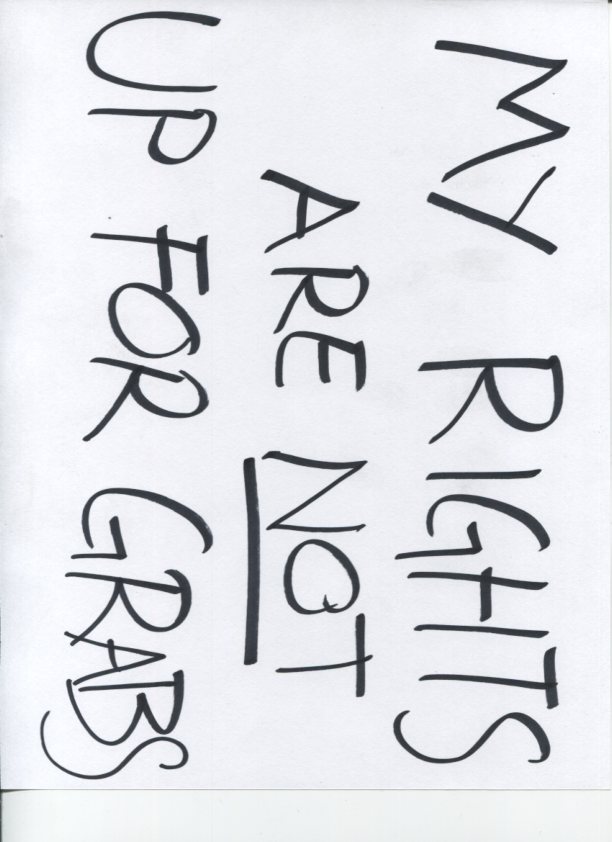 MY RIGHTS
ARE NOT
UP FOR GRABS